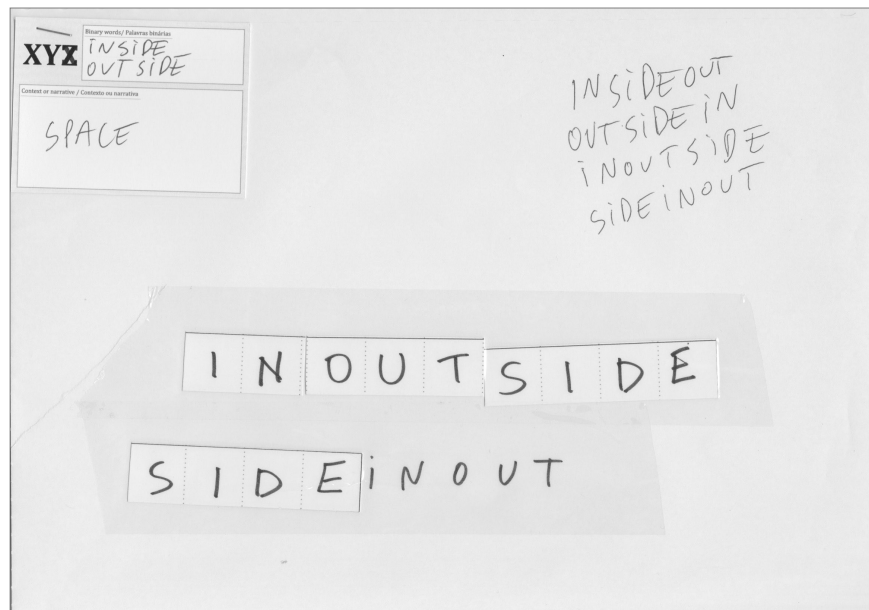 XYZ
Binary words/ Palavras binárias
INSiDE
OUTSiDE
Context or narrative / Contexto ou narrativa
SPACE
INSiDEOUT
OUTSiDEiN
iNOUTSiDE
SiDEiNOUT
INOUTSIDE
SIDEiNOUT